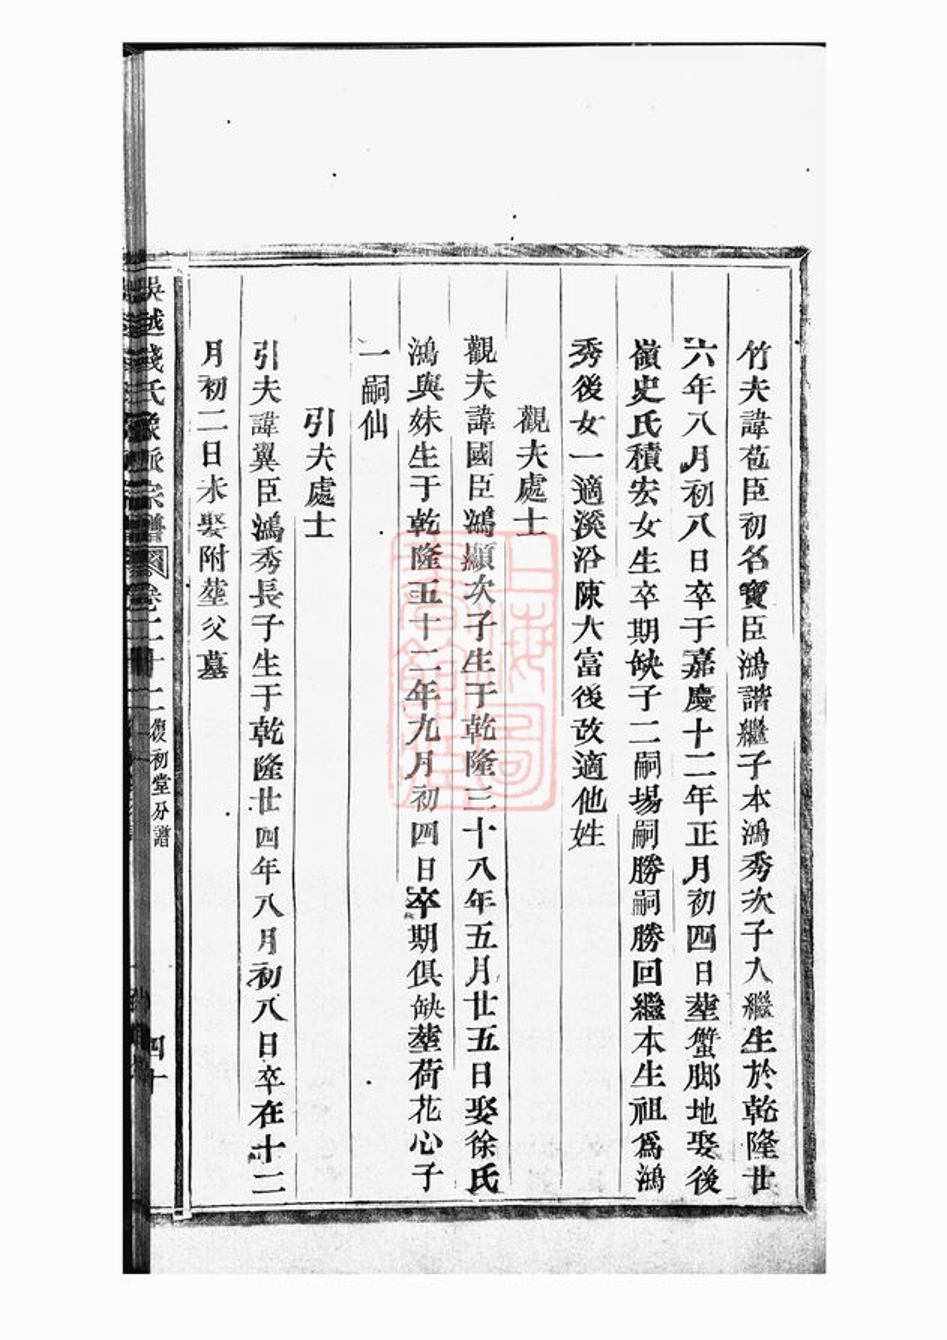 竹夫諱苞臣初名寶臣鴻諧繼子本鴻秀次子入繼生於乾隆廿
六年八月初八日卒于嘉慶十二年正月初四日塟蟹脚地娶後
嶺史氏積宏女生卒期缺子二嗣場嗣勝嗣勝回繼本生祖爲鴻
秀後女一適溪沿陳大富後改適他姓
觀夫處士
觀夫諱國臣鴻顯次子生于乾隆三十八年五月廿五日娶徐氏
鴻與妹生于乾隆五十二年九月初四日卒期俱缺塟荷花心子
一嗣仙
引夫處士
引夫諱翼臣鴻秀長子生于乾隆廿四年八月初八日卒在十二
月初二日未娶附塟父墓
吳越錢氏 宗譜 卷二十二 復初堂分譜 四十
上海圖書館藏